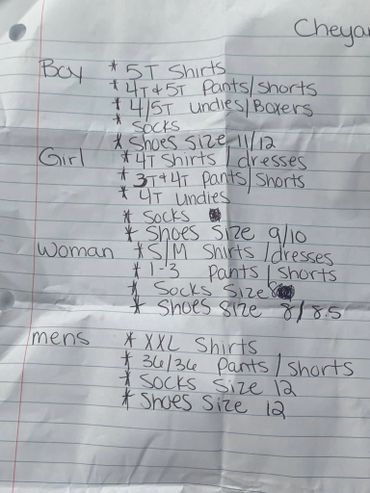 Cheya
Boy * 5T Shirts
* 4T & 5T Pants/Shorts
* 4/5T undies/Boxers
* Socks
* Shoes Size 11/12
Girl * 4T Shirts / dresses
* 3T & 4T Pants/Shorts
* 4T undies
* Socks
* Shoes Size 9/10
Woman * S/M Shirts /dresses
* 1-3 Pants / Shorts
* Socks Size 8
* Shoes Size 8/8.5
mens * XXL Shirts
* 36/36 Pants/Shorts
* Socks Size 12
* Shoes Size 12